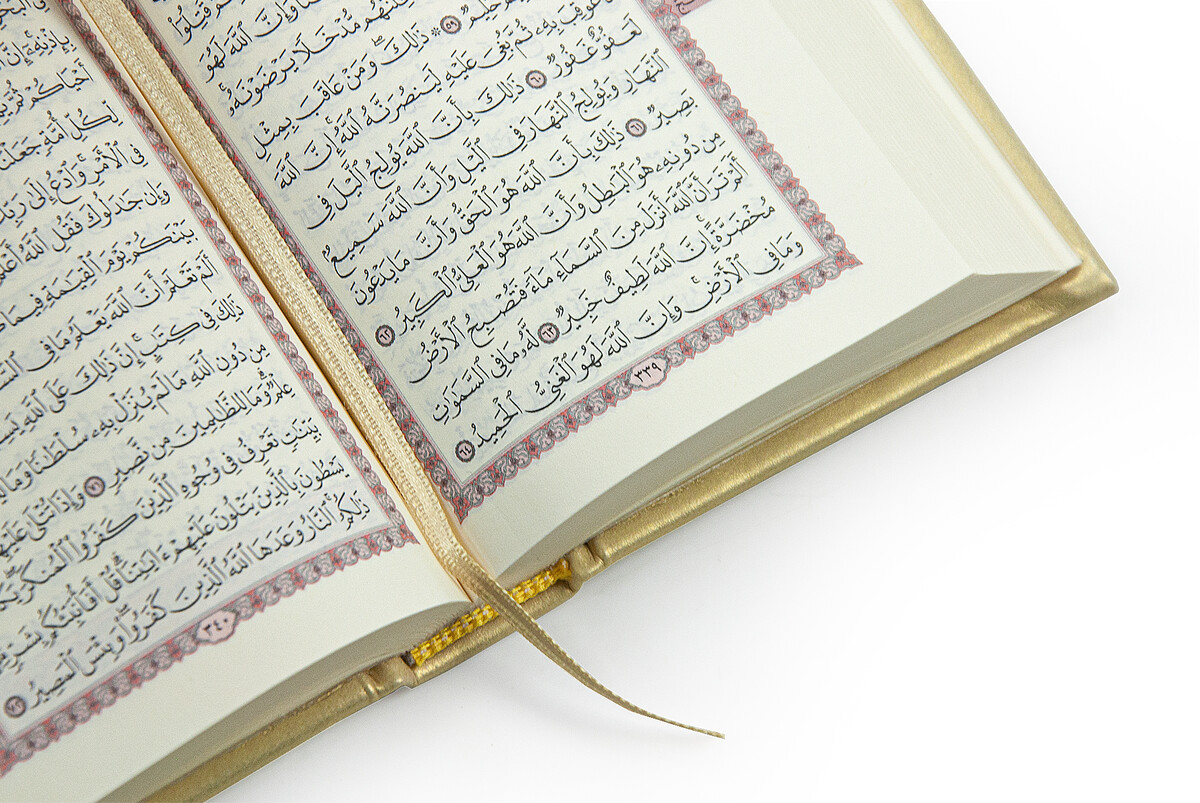 قُتِلُوٓاْ
وَإِنَّ ٱللَّهَ لَهُوَ
مُّدۡخَلٗا يَرۡضَوۡنَهُۥۚ
حَلِيمٞ ٥٩ ۞ ذَٰلِكَۖ وَمَنۡ عَاقَبَ بِمِثۡلِ
عُوقِبَ بِهِۦ ثُمَّ بُغِيَ عَلَيۡهِ لَيَنصُرَنَّهُ ٱللَّهُۚ إِنَّ ٱللَّهَ
لَعَفُوٌّ غَفُورٞ ٦٠ ذَٰلِكَ بِأَنَّ ٱللَّهَ يُولِجُ ٱلَّيۡلَ فِي
ٱلنَّهَارِ وَيُولِجُ ٱلنَّهَارَ فِي ٱلَّيۡلِ وَأَنَّ ٱللَّهَ سَمِيعُۢ
بَصِيرٞ ٦١ ذَٰلِكَ بِأَنَّ ٱللَّهَ هُوَ ٱلۡحَقُّ وَأَنَّ مَا يَدۡعُونَ
مِن دُونِهِۦ هُوَ ٱلۡبَٰطِلُ وَأَنَّ ٱللَّهَ هُوَ ٱلۡعَلِيُّ ٱلۡكَبِيرُ ٦٢
أَلَمۡ تَرَ أَنَّ ٱللَّهَ أَنزَلَ مِنَ ٱلسَّمَآءِ مَآءٗ فَتُصۡبِحُ ٱلۡأَرۡضُ
مُخۡضَرَّةًۚ إِنَّ ٱللَّهَ لَطِيفٌ خَبِيرٞ ٦٣ لَّهُۥ مَا فِي ٱلسَّمَٰوَٰتِ
وَمَا فِي ٱلۡأَرۡضِۚ وَإِنَّ ٱللَّهَ لَهُوَ ٱلۡغَنِيُّ ٱلۡحَمِيدُ ٦٤
٣٣٩
بِإِذۡنِهِۦٓۚ إِنَّ
أَحۡيَاكُمۡ ثُمَّ
لِّكُلِّ أُمَّةٖ جَعَلۡنَا
فِي ٱلۡأَمۡرِۚ وَٱدۡعُ إِلَىٰ رَبِّكَۖ
وَإِن جَٰدَلُوكَ فَقُلِ ٱللَّهُ
بَيۡنَكُمۡ يَوۡمَ ٱلۡقِيَٰمَةِ فِيمَا
أَلَمۡ تَعۡلَمۡ أَنَّ ٱللَّهَ يَعۡلَمُ مَا فِي
ذَٰلِكَ فِي كِتَٰبٍۚ إِنَّ ذَٰلِكَ عَلَى ٱللَّهِ
مِن دُونِ ٱللَّهِ مَا لَمۡ يُنَزِّلۡ بِهِۦ سُلۡطَٰنٗا وَمَا
عِلۡمٞۗ وَمَا لِلظَّٰلِمِينَ مِن نَّصِيرٖ ٧١ وَإِذَا تُتۡلَىٰ
بَيِّنَٰتٖ تَعۡرِفُ فِي وُجُوهِ ٱلَّذِينَ كَفَرُواْ ٱلۡمُنكَرَۖ
يَسۡطُونَ بِٱلَّذِينَ يَتۡلُونَ عَلَيۡهِمۡ ءَايَٰتِنَاۗ قُلۡ أَفَأُنَبِّئُكُم بِشَرّٖ
ذَٰلِكُمُۚ ٱلنَّارُ وَعَدَهَا ٱللَّهُ ٱلَّذِينَ كَفَرُواْۖ وَبِئۡسَ ٱلۡمَصِيرُ ٧٢
٣٤٠